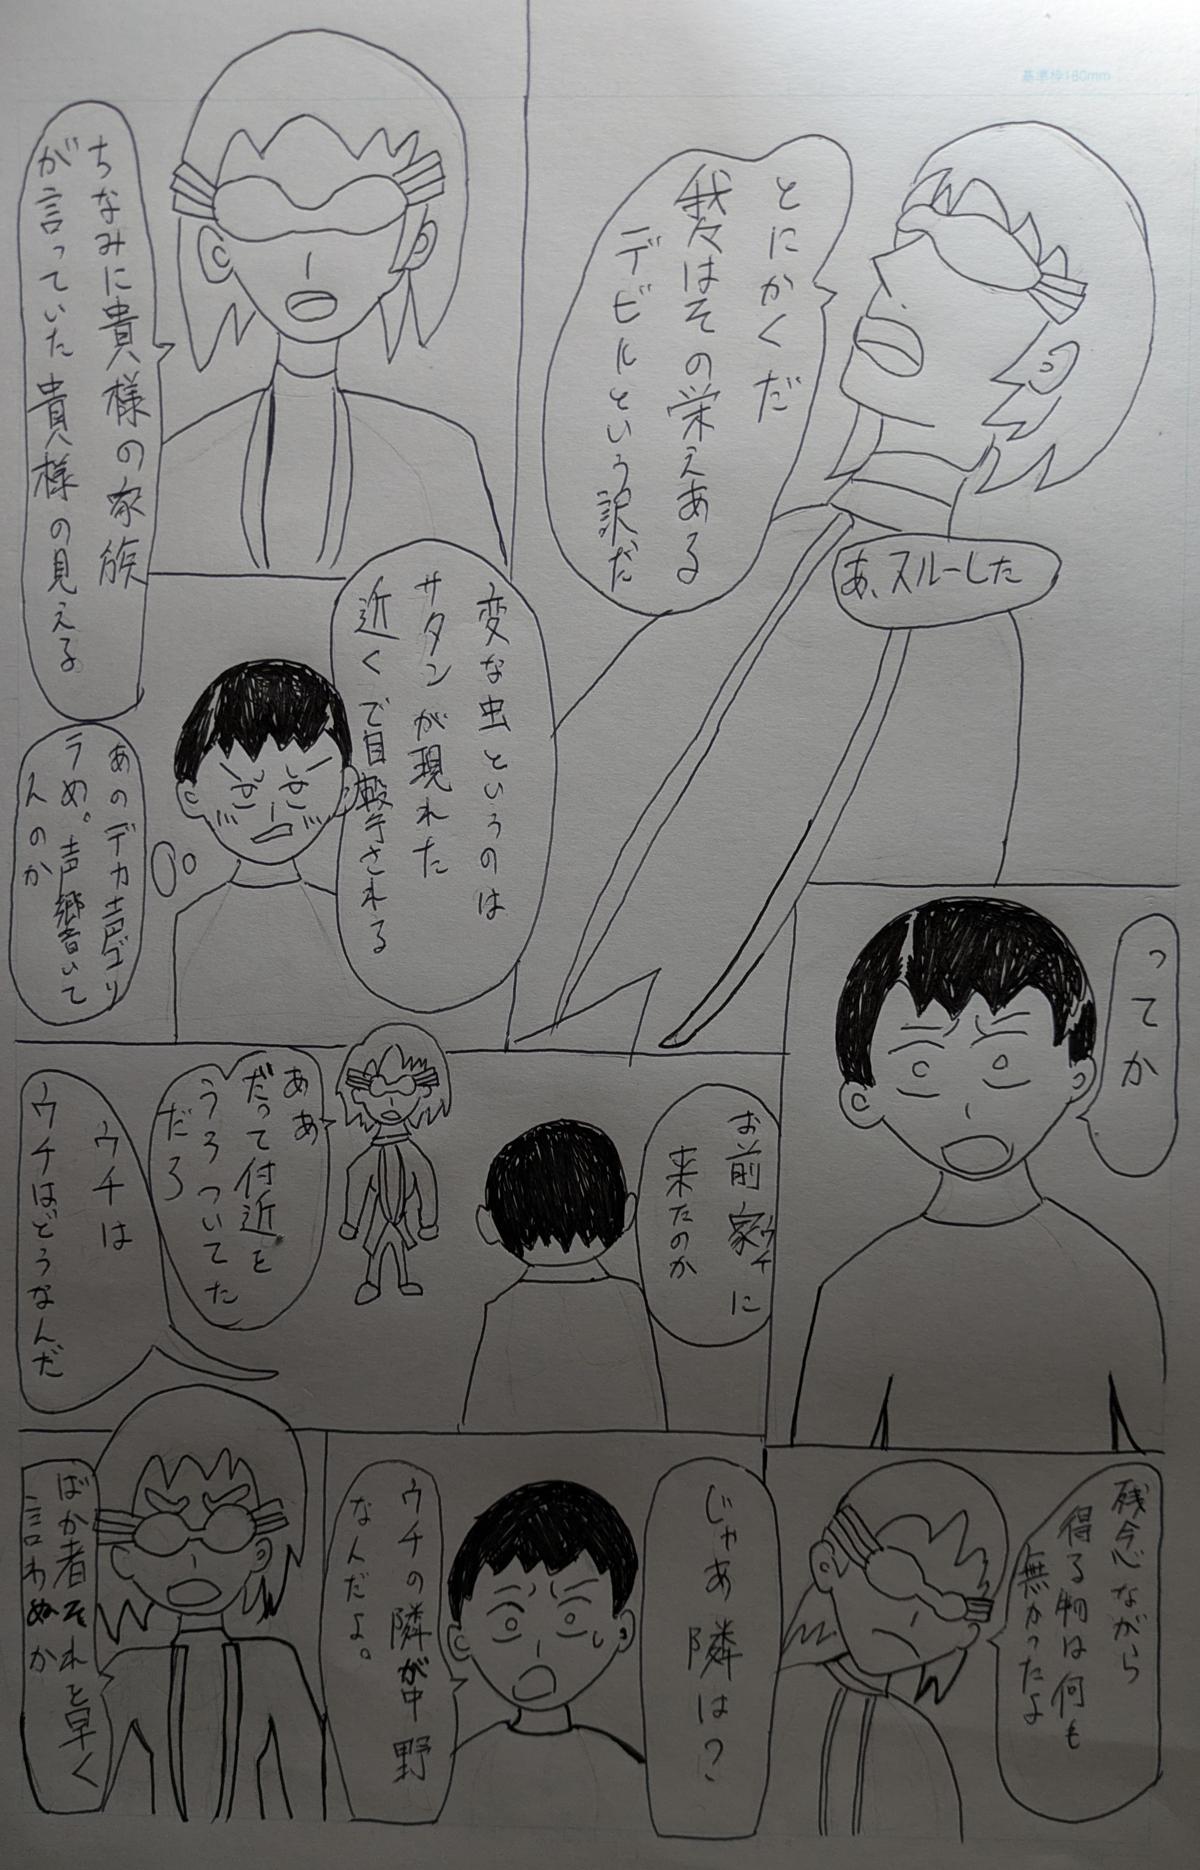 基準枠180mm
とにかくだ
我々はその栄えある
デビルという訳だ
あ、スルーした
ちなみに貴様の家族
が言っていた貴様の見える
変な虫というのは
サタンが現れた
近くで目撃される
あのデカ声ゴリ
ラめ。声響いて
んのか
ってか
お前家に
ウチ
来たのか
ああ
だって付近を
うろついてた
だろ
ウチは
ウチはどうなんだ
残念ながら
得る物は何も
無かったよ
じゃあ隣は?
ウチの隣が中野
なんだよ。
ばか者それを早く
言わぬか